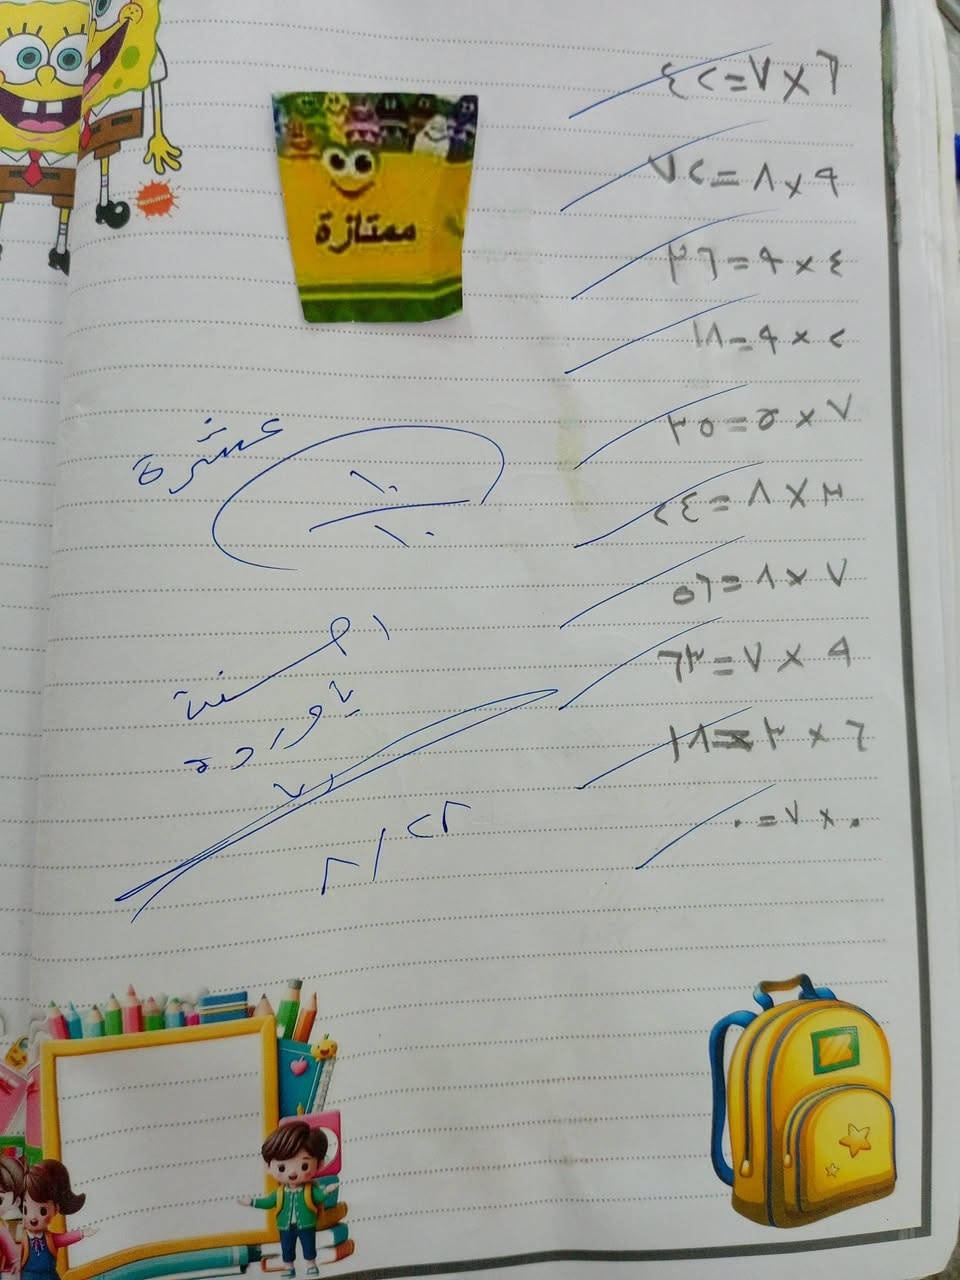 ٦ × ٧ = ٤٢
٩ × ٨ = ٧٢
٤ × ٩ = ٣٦
٢ × ٩ = ١٨
٧ × ٥ = ٣٥
٣ × ٨ = ٢٤
٧ × ٨ = ٥٦
٩ × ٧ = ٦٣
٦ × ٣ = ١٨
٠ × ٧ = ٠
ممتازة
عشرة
١٠
١٠
احسنت
يا ورده